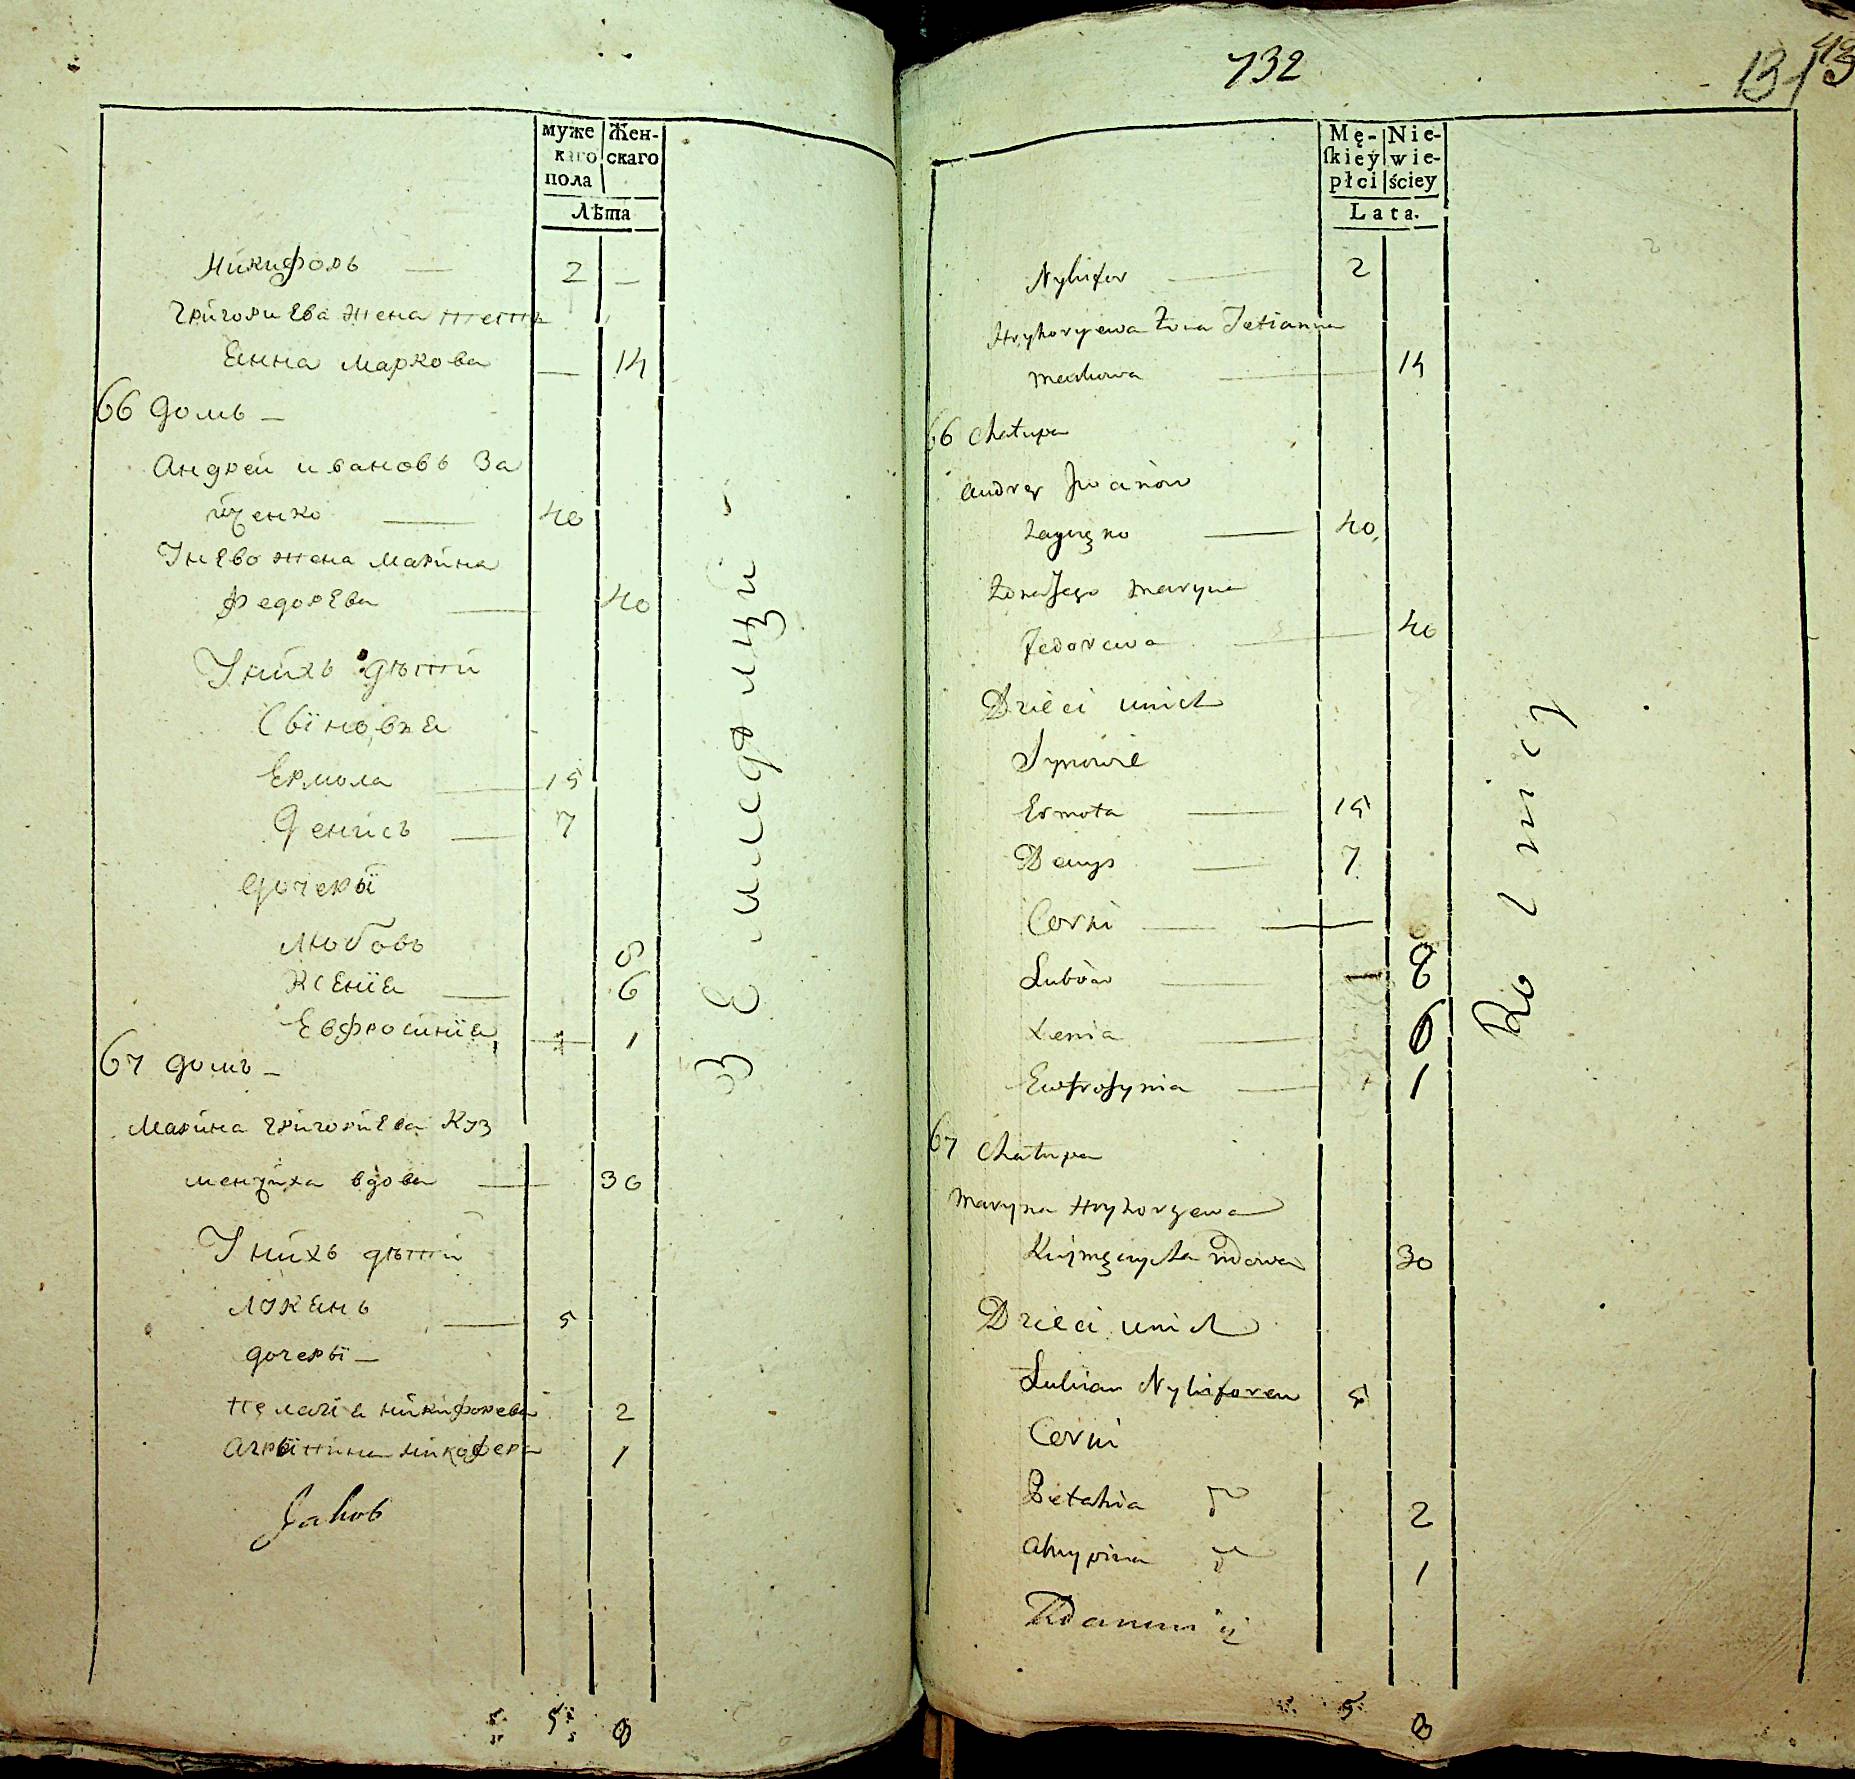 муже Жен-
каго скаго
пола
Лѣта
Никифоръ — 2 —
Григориева жена тетя
Еанна Маркова — 14
66 домъ —
Андрей ивановъ За
яценко — 40
У нево жена Марина
Федорева — 40
У нихъ дѣтей
Сыновья
Ермола — 15
Денисъ — 7
дочеры
Любовь 8
Ксения — 6
Евфросиния — 1
67 домъ —
Марина Григориева Куз
менчиха вдова — 30
У нихъ дѣтей
Лукянъ — 5
дочеры —
Пелагия никифорева 2
Агрыпина никофера 1
Jakob
5 8
Земледѣлцы
732
13
Mę- Nie-
skiey wie-
płci ściey
Lata.
Nykifor — 2
Hryhoryewa Żona Tetianna
Markowa — 14
66 Chałupa
Andrey Jwanów
— 40
Żona Jego Maryna
Fedorewa — 40
Dzieci unich
Synowie
Ermoła — 15
Denys — 7
Corki —
Lubów — 8
Xenia — 6
Ewfrosynia — 1
67 Chałupa
Maryna Hryhoryewa
Kuźmęczycha wdowa 30
Dzieci unich
Lukian Nykiforew 5
Corki
Pelahia 2
Ahrypina 1
5 8
Rolnicy